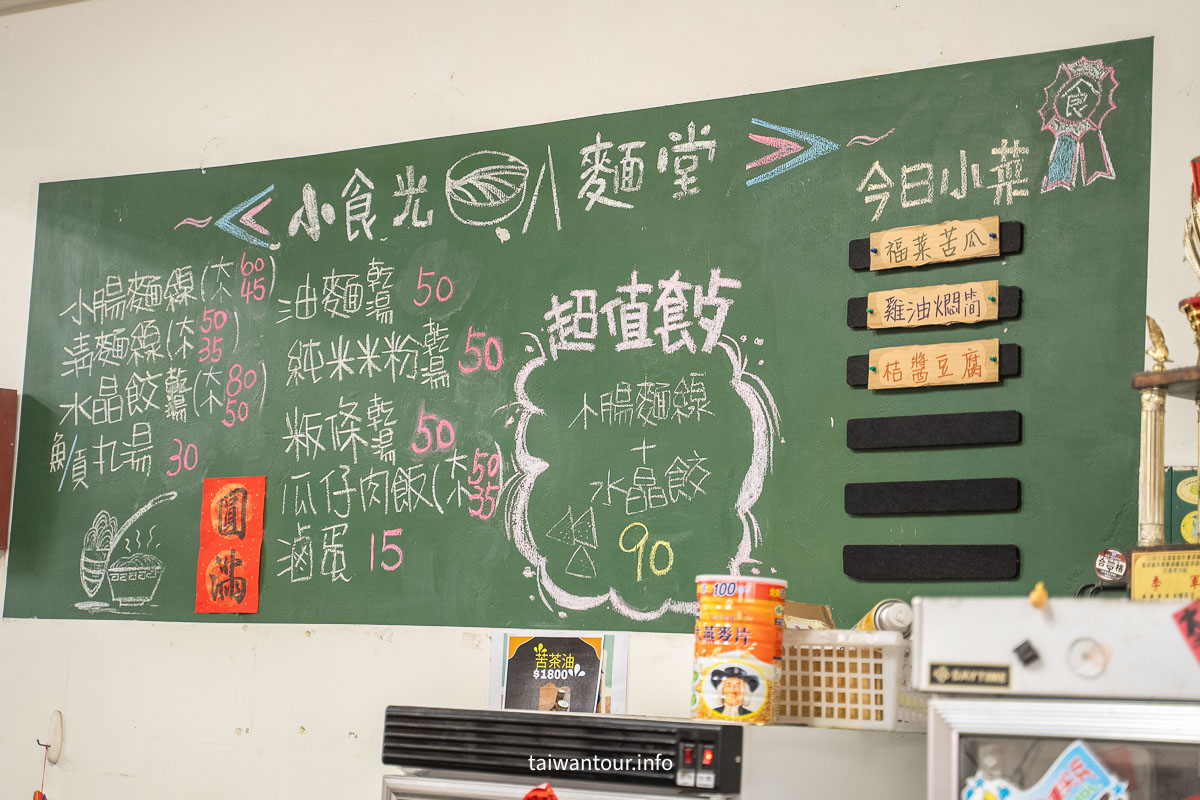 小食光 麵堂
小腸麵線(大60 小45)
清麵線(大50 小35)
水晶餃乾湯(大80 小50)
魚丸湯 30
油麵乾湯 50
純米米粉乾湯 50
粄條乾湯 50
瓜仔肉飯(大50 小35)
滷蛋 15
圓滿
超值餐
小腸麵線
+
水晶餃
90
食
今日小菜
福菜苦瓜
雞油燜筒
桔醬豆腐
苦茶油
$1800
100
燕麥片
DAYTIME
taiwantour.info